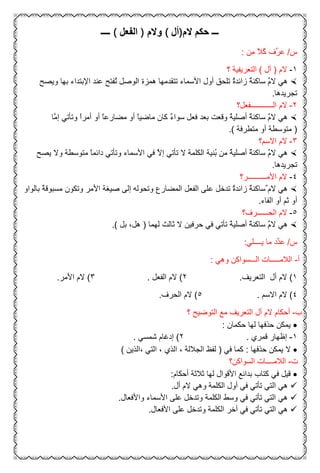 ـــ حكم لام(أل ) ولام ( الفعل ) ـــ
س/ عرّف كلاً من :
١- لام ( أل ) التعريفية ؟
هي لامٌ ساكنة زائدةٌ تلحق أول الأسماء تتقدمها همزة الوصل تُفتح عند الإبتداء بها ويصح
تجريدها.
٢- لام الـــــــــــفعل؟
هي لامٌ ساكنة أصلية وقعت بعد فعل سواءً كان ماضياً أو مضارعاً أو أمراً وتأتي إمَّا
( متوسطة أو متطرفة ).
٣- لام الاسم؟
هي لامٌ ساكنة أصلية من بُنية الكلمة لا تأتي إلاّ في الأسماء وتأتي دائماً متوسطة ولا يصح
تجريدها.
٤- لام الأمــــــــر؟
هي لامٌ ساكنة زائدةٌ تدخل على الفعل المضارع وتحوله إلى صيغة الأمر وتكون مسبوقة بالواو
أو ثم أو الفاء.
٥- لام الحـــــرف؟
هي لامٌ ساكنة أصلية تأتي في حرفين لا ثالث لهما ( هل، بل ).
س/ عدّد ما يـــلي:
أ- اللامــــات الـــسواكن وهي :
١) لام أل التعريف. ٢) لام الفعل . ٣) لام الأمر.
٤) لام الاسم . ٥) لام الحرف.
ب- أحكام لام أل التعريف مع التوضيح ؟
يمكن حذفها لها حكمان :
١- إظهار قمري . ٢) إدغام شمسي .
لا يمكن حذفها : كما في ( لفظ الجلالة ، الذي ، التي ،الذين )
ت- اللامــــات السواكن؟
قيل في كتاب بدائع الأقوال لها ثلاثة أحكام:
هي التي تأتي في أول الكلمة وهي لام أل.
هي التي تأتي في وسط الكلمة وتدخل على الأسماء والأفعال.
هي التي تأتي في أخر الكلمة وتدخل على الأفعال.